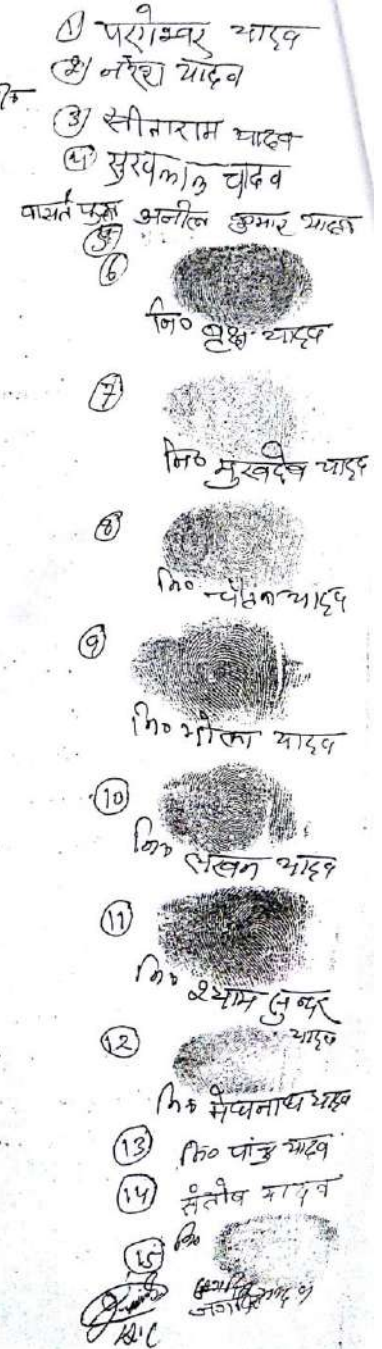 ① परमेश्वर यादव
② नरेश यादव
③ सीताराम यादव
④ सुखलाल यादव
अनील कुमार यादव
⑤
⑥
नि० बृक्ष यादव
⑦
नि० सुखदेव यादव
⑧
नि० यादव
⑨
नि० भोला यादव
⑩
नि० लखन यादव
⑪
नि० श्याम सुन्दर
यादव
⑫
नि० मेघनाथ यादव
⑬ नि० पांचु यादव
⑭ संतोष यादव
⑮ नि०